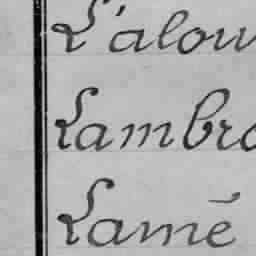 L'alou
Lambro
Lamē